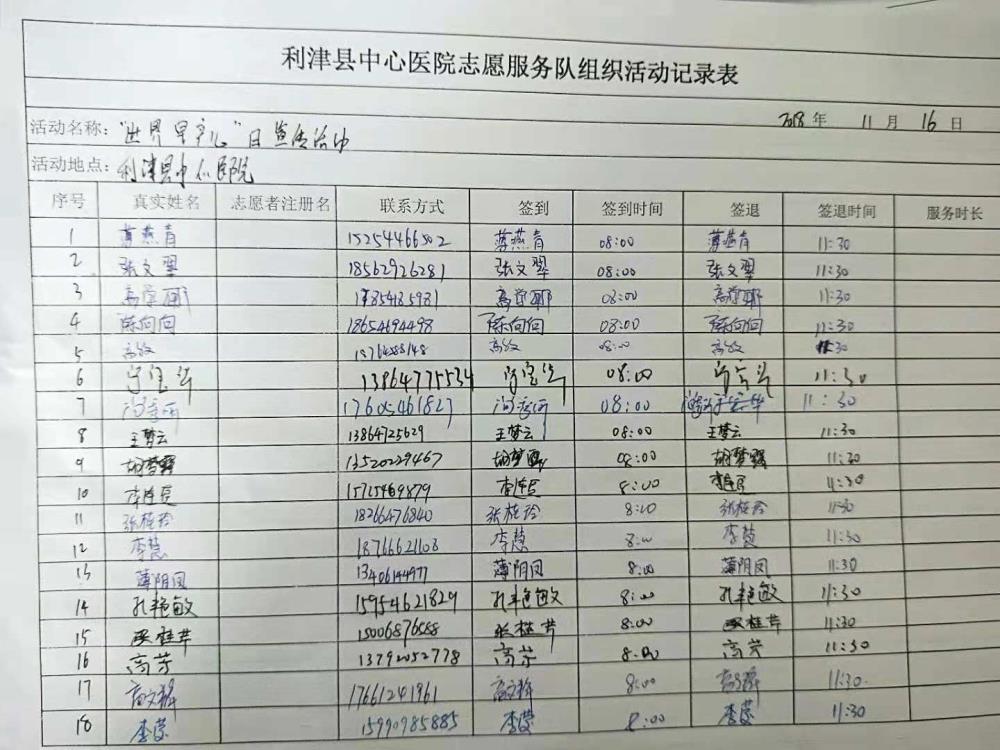 利津县中心医院志愿服务队组织活动记录表
2018 年 11 月 16 日
活动名称: "世界早产儿"日宣传活动
活动地点: 利津县中心医院
序号 真实姓名 志愿者注册名 联系方式 签到 签到时间 签退 签退时间 服务时长
1 薄燕青 15254466502 薄燕青 08:00 薄燕青 11:30
2 张文翠 18562926281 张文翠 08:00 张文翠 11:30
3 08:00 11:30
4 陈向向 18654694498 陈向向 08:00 陈向向 11:30
5 高敏 高敏 08:00 高敏 11:30
6 13864775534 08:00 11:30
7 17605461827 08:00 11:30
8 王梦云 13864725629 王梦云 08:00 王梦云 11:30
9 胡梦露 13520229467 胡梦露 08:00 胡梦露 11:30
10 15725469879 8:00 11:30
11 张桂玲 18266476840 张桂玲 8:00 张桂玲 11:30
12 李慧 18766621108 李慧 8:00 李慧 11:30
13 薄阴凤 13406144977 薄阴凤 8:00 薄阴凤 11:30
14 孔艳敏 15954621829 孔艳敏 8:00 孔艳敏 11:30
15 张桂芹 15006876588 张桂芹 8:00 张桂芹 11:30
16 高芳 13792052778 高芳 8:00 高芳 11:30
17 17661241961 8:00 11:30
18 李蒙 15990985885 李蒙 8:00 李蒙 11:30